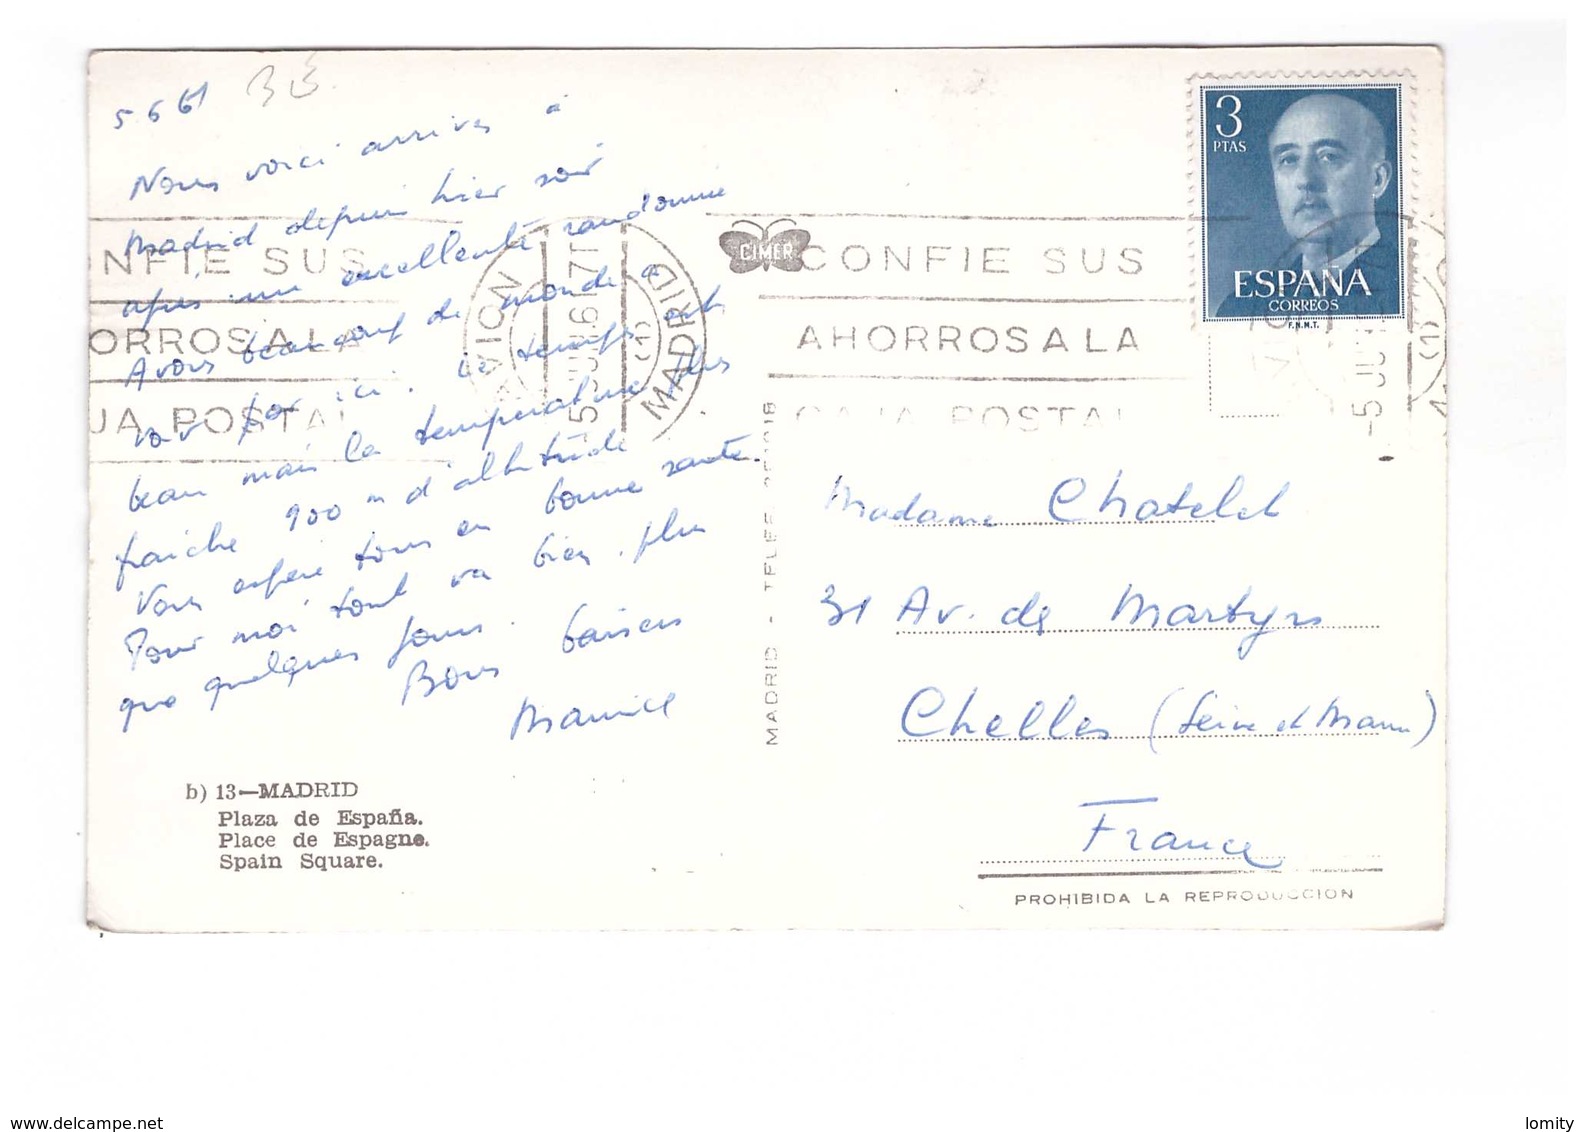 5 6 61
Nous voici arrivés à
Madrid depuis hier soir
après une excellente randonnée
Avons beaucoup de monde à
voir par ici. Le temps est
beau mais la température plus
fraîche 900 m d'altitude
Vous espère tous en bonne santé.
Pour moi tout va bien. plus
que quelques jours.
Bons baisers
Maurice
b) 13—MADRID
Plaza de España.
Place de Espagne.
Spain Square.
NFIE SUS
ORROS A LA
JA POSTAL
AVION
MADRID
(1)
5 JUN.61 7T
CIMER
CONFIE SUS
AHORROS A LA
CAJA POSTAL
3
PTAS
ESPAÑA
CORREOS
F.N.M.T.
-5 JUN
(1)
MADRID - TELEF.
Madame Chatelet
31 Av. des Martyrs
Chelles (Seine et Marne)
France
PROHIBIDA LA REPRODUCCION
www.delcampe.net
lomity